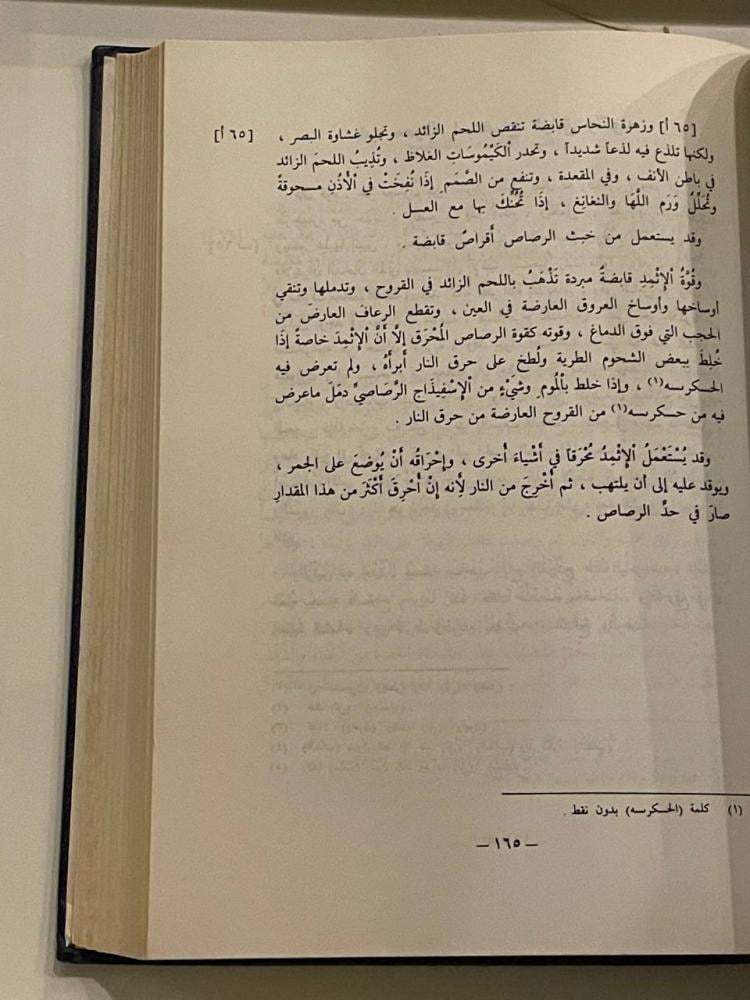 [٦٥ أ] وزهرة النحاس قابضة تنقص اللحم الزائد ، وتجلو غشاوة البصر ، [٦٥ أ]
ولكنها تلذع فيه لذعاً شديداً ، وتحدر ٱلكَيْمُوسَاتِ الغلاظ ، وتُذِيبُ اللحمَ الزائد
في باطن الأنف ، وفي المقعدة ، وتنفع من الصَّمَم إذَا نُفِخَتْ في ٱلْأُذُنِ مسحوقةً
وتُحَلِّلُ وَرَم اللَّهَا والنغانِغ ، إذَا تُحُنِّكَ بها مع العسل .
وقد يستعمل من خبث الرصاص أقراصٌ قابضة .
وقُوَّةُ ٱلإِثْمِدِ قابضةٌ مبردة تَذْهَبُ باللحم الزائد في القروح ، وتدملها وتنقي
أوساخها وأوساخ العروق العارضة في العين ، وتقطع الرعاف العارضَ من
الحجب التي فوق الدماغ ، وقوته كقوة الرصاص المُحْرَق إلَّا أَنَّ ٱلإِثْمِدَ خاصةً إذَا
خُلِطَ ببعض الشحوم الطرية ولُطخ على حرق النار أَبرأَهُ ، ولم تعرض فيه
الحسكرسه(١) ، وإذا خلط بٱلْمومِ وشَيْءٍ من ٱلإِسْفِيذَاجِ الرَّصَاصِيِّ دمّلَ ماعرض
فيه من حسكرسه(١) من القروح العارضة من حرق النار .
وقد يُسْتَعْمَلُ ٱلإِثْمِدُ مُحْرَقاً في أَشْيَاءَ أُخرى ، وإحْرَاقُه أَنْ يُوضعَ على الجمر ،
ويوقد عليه إلى أن يلتهب ، ثم أُخْرِجَ من النار لأَنه إنْ أُحْرِقَ أَكْثَرَ من هذا المقدارِ
صارَ في حدِّ الرصاص .
(١) كلمة (الحسكرسه) بدون نقط .
— ١٦٥ —